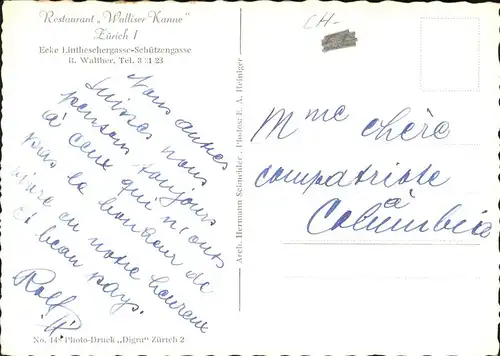 Restaurant „Walliser Kanne"
Zürich I
Ecke Lintheschergasse-Schützengasse
R. Walther, Tel. 3 31 23
CH-
Nous autres
Suisses nous
pensons toujours
à ceux qui n'ont
pas le bonheur de
vivre en notre heureux
et beau pays.
Rolf
Arch. Hermann Schneider. Photos: E. A. Heiniger
Mme chère
compatriote
à
Columbia
No. 149 Photo-Druck „Digra" Zürich 2